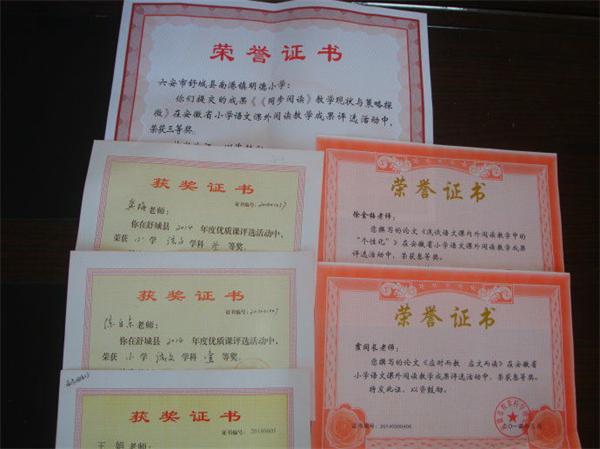 荣誉证书
六安市舒城县南港镇明德小学：
你们提交的成果《《同步阅读》教学现状与策略探
微》在安徽省小学语文课外阅读教学成果评选活动中，
荣获三等奖。
获奖证书
老师：
你在舒城县2014年度优质课评选活动中，
荣获小学语文学科等奖。
荣誉证书
徐金梅老师：
您撰写的论文《浅谈语文课内外阅读教学中的
“个性化”》在安徽省小学语文课外阅读教学成果
评选活动中，荣获叁等奖。
获奖证书
证书编号：
老师：
你在舒城县2014年度优质课评选活动中，
荣获小学语文学科壹等奖。
荣誉证书
霍同长老师：
您撰写的论文《应时而教 启文而读》在安徽省
小学语文课外阅读教学成果评选活动中，荣获叁等奖。
特发此证，以资鼓励。
获奖证书
证书编号：
王娟老师：